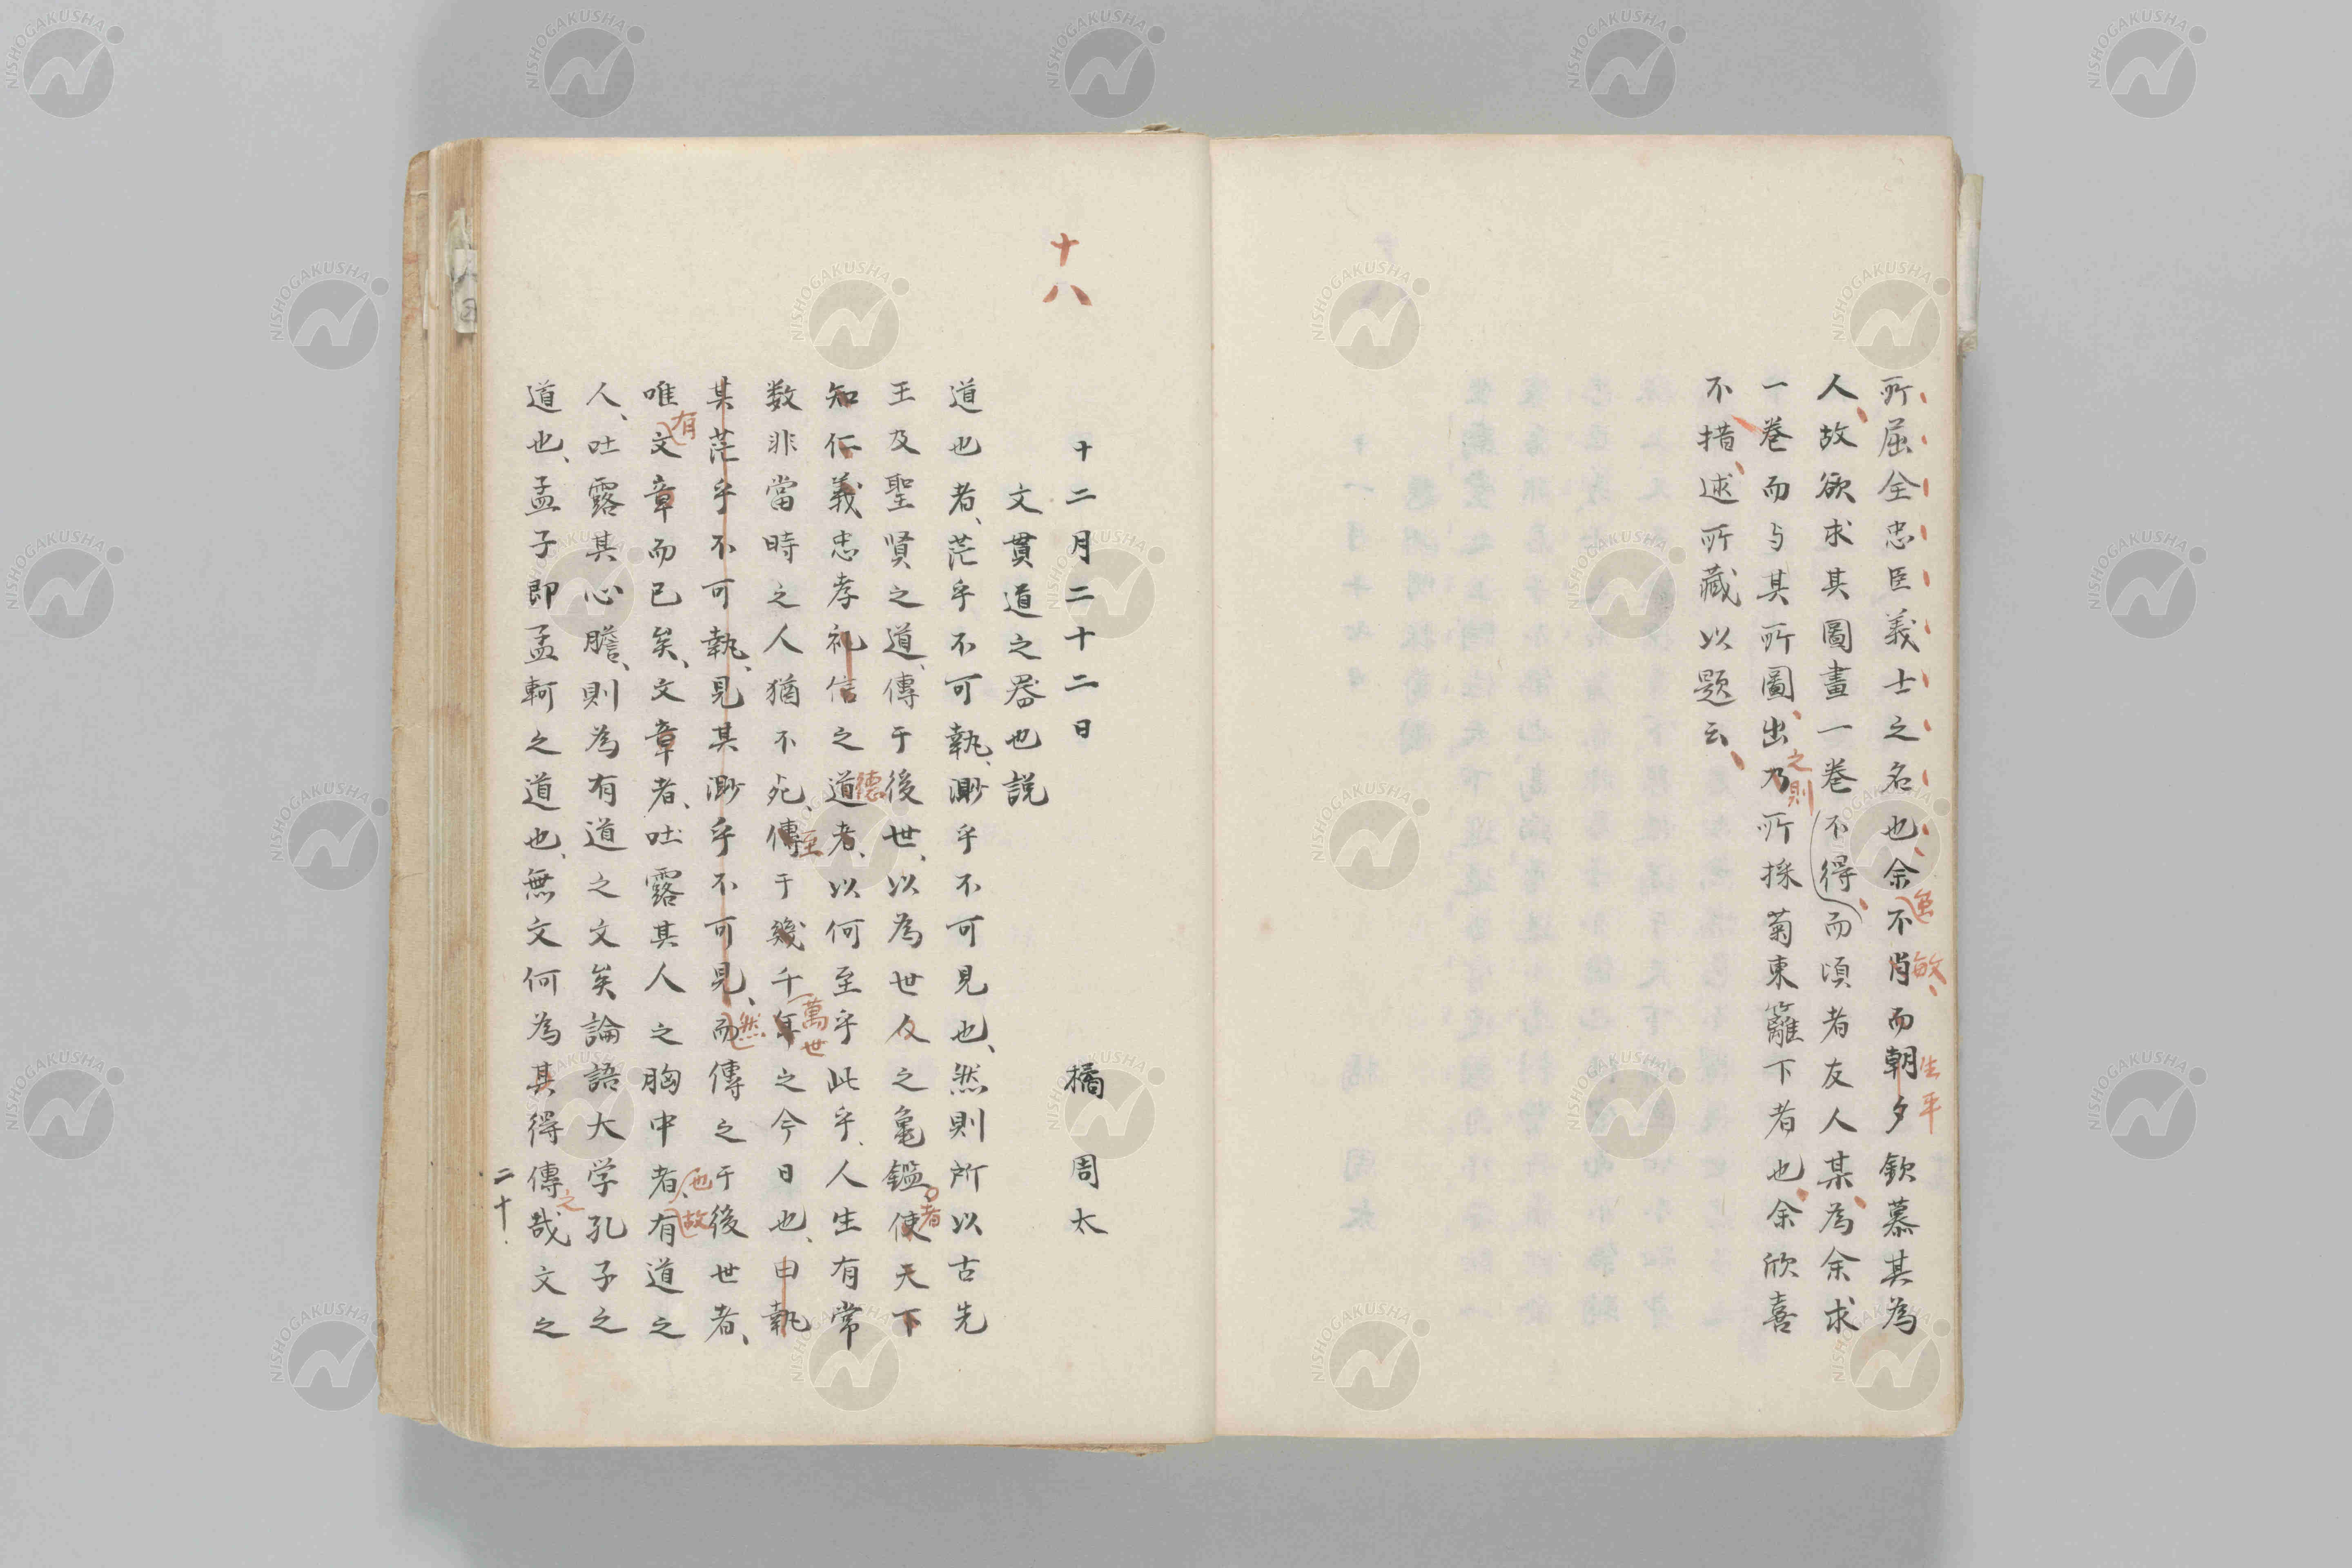 所屈全忠臣義士之名也余不肖而朝夕欽慕其為
人故欲求其圖畫一卷不得而頃者友人某為余求
一卷而与其所圖出乃所採菊東籬下者也余欣喜
不措述所藏以題云
雖
敏
生平
之則
十八
十二月二十二日 橘周太
文貫道之器也説
道也者茫乎不可執渺乎不可見也然則所以古先
王及聖賢之道傳于後世以為世人之亀鑑使天下
知仁義忠孝礼信之道者以何至乎此乎人生有常
数非當時之人猶不死傳于幾千年之今日也由執
其茫乎不可執見其渺乎不可見而傳之于後世者
唯文章而已矣文章者吐露其人之胸中者有道之
人吐露其心膽則為有道之文矣論語大学孔子之
道也孟子即孟軻之道也無文何為其得傳哉文之
者
德
至
萬世
然
有
也故
之
二十
NISHOGAKUSHA